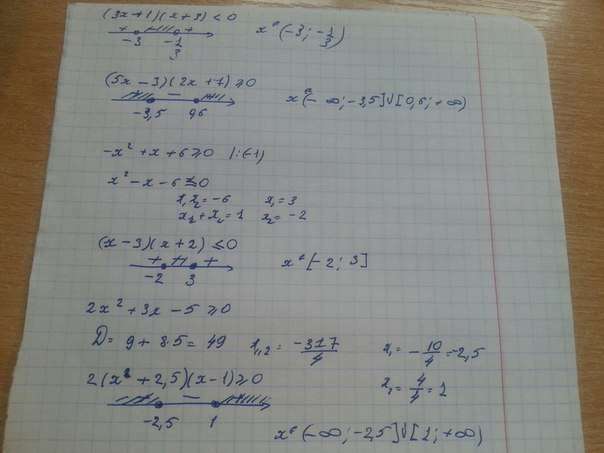 (3x+1)(x+3)<0
+ - + x∈(-3; -1/3)
-3 -1/3
(5x-3)(2x+7)≥0
- x∈(-∞; -3,5]∪[0,6; +∞)
-3,5 0,6
-x²+x+6≥0 |:(-1)
x²-x-6≤0
x₁x₂=-6 x₁=3
x₂+x₁=1 x₂=-2
(x-3)(x+2)≤0
+ - + x∈[-2; 3]
-2 3
2x²+3x-5≥0
D=9+8·5=49 x₁,₂=(-3±7)/4 x₁=-10/4=-2,5
2(x+2,5)(x-1)≥0 x₂=4/4=1
-
-2,5 1 x∈(-∞; -2,5]∪[1; +∞)